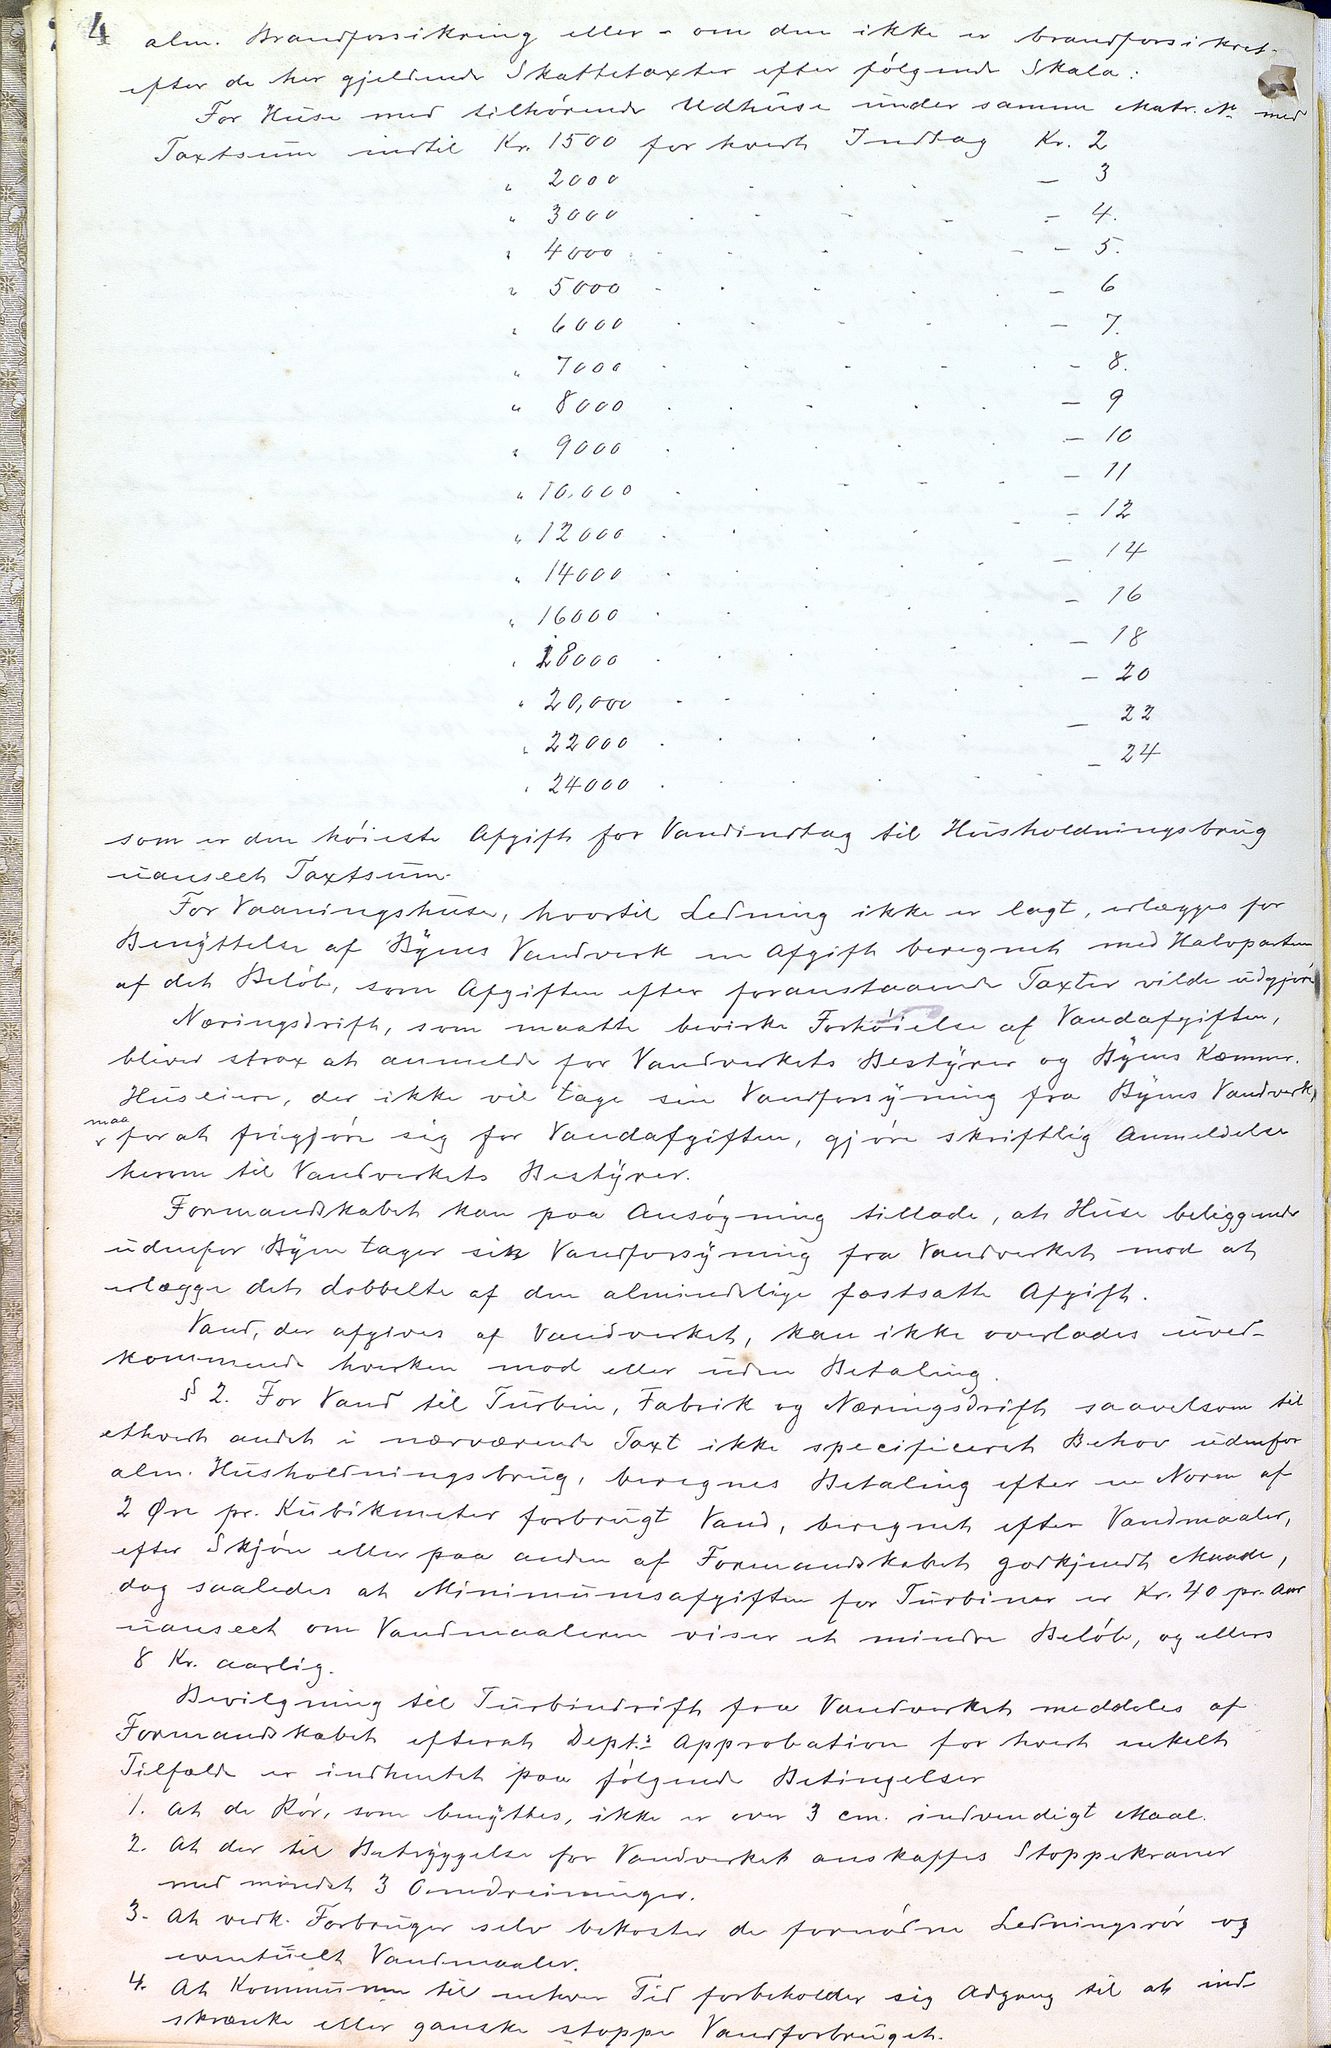 4
alm. Brandforsikring eller - om den ikke er brandforsikret -
efter de her gjeldende Skattetaxter efter følgende Skala:
For Huse med tilhørende Udhuse under samme Matr. No med
Taxtsum indtil Kr. 1500 for hvert Indtag Kr. 2
" 2000 . . . . — 3
" 3000 . . . . — 4.
" 4000 . . . . — 5.
" 5000 . . . . — 6
" 6000 . . . . — 7.
" 7000 . . . . — 8.
" 8000 . . . . — 9
" 9000 . . . . — 10
" 10.000 . . . . — 11
" 12000 . . . . — 12
" 14000 . . . . — 14
" 16000 . . . . — 16
" 18000 . . . . — 18
" 20,000 . . . . — 20
" 22000 . . . . — 22
" 24000 . . . . — 24
som er den høieste Afgift for Vandindtag til Husholdningsbrug
uanseet Taxtsum.
For Vaaningshuse, hvortil Ledning ikke er lagt, erlægges for
Benyttelse af Byens Vandverk en Afgift beregnet med Halvparten
af det Beløb, som Afgiften efter foranstaaende Taxter vilde udgjøre
Næringsdrift, som maatte bevirke Forhøielse af Vandafgiften,
bliver strax at anmelde for Vandverkets Bestyrer og Byens Kæmner.
Huseiere, der ikke vil tage sin Vandforsyning fra Byens Vandverk,
maa
v for at frigjøre sig for Vandafgiften, gjøre skriftlig Anmeldelse
herom til Vandverkets Bestyrer.
Formandskabet kan paa Ansøgning tillade, at Huse beliggende
udenfor Byen tager sin Vandforsyning fra Vandverket mod at
erlægge det dobbelte af den almindelige fastsatte Afgift.
Vand, der afgives af Vandverket, kan ikke overlades uved-
kommende hverken mod eller uden Betaling.
§ 2. For Vand til Turbin, Fabrik og Næringsdrift saavelsom til
ethvert andet i nærværende Taxt ikke specificeret Behov udenfor
alm. Husholdningsbrug, beregnes Betaling efter en Norm af
2 Øre pr. Kubikmeter forbrugt Vand, beregnet efter Vandmaaler,
efter Skjøn eller paa anden af Formandskabet godkjendt Maade,
dog saaledes at Minimumsafgiften for Turbiner er Kr. 40 pr. Aar
uanseet om Vandmaaleren viser et mindre Beløb, og ellers
8 Kr. aarlig.
Bevilgning til Turbindrift fra Vandverket meddeles af
Formandskabet efterat Dept.s Approbation for hvert enkelt
Tilfælde er indhentet paa følgende Betingelser
1. At de Rør, som benyttes, ikke er over 3 cm. indvendigt Maal.
2. At der til Betryggelse for Vandverket anskaffes Stoppekraner
med mindst 3 Omdreininger.
3. At vedk. Forbruger selv bekoster de fornødne Ledningsrør og
eventuelt Vandmaaler.
4. At Kommunen til enhver Tid forbeholder sig Adgang til at ind-
skrænke eller ganske stoppe Vandforbruget.